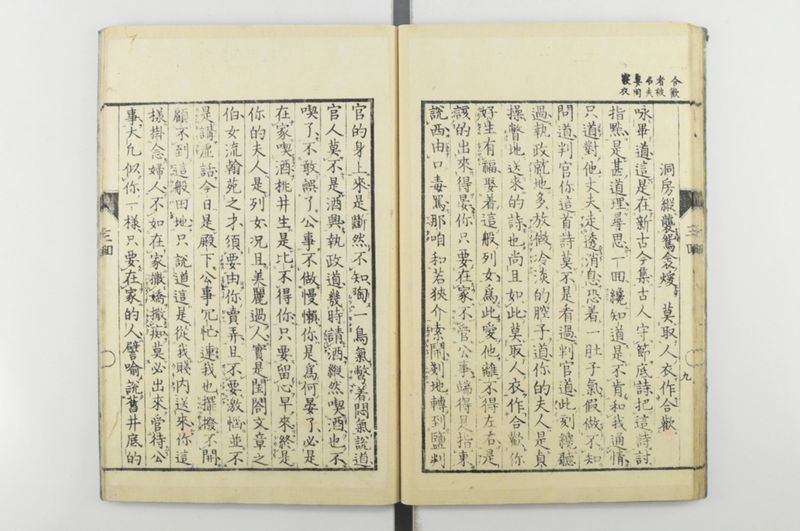 合歡
者被
名夫
婁聞
裴衣
洞房縱襲鴛衾煖　莫取人衣作合歡
九
咏畢道這是在新古今集古人守節底詩把這詩討
指點是甚道理尋思一回纔知道是不肯和我通情
只道對他丈夫走透消息恐着一肚子氣假做不知
問道判官你這首詩莫不是看過判官道此刻纔聽
過執政就地多放做冷淡的腔子道你的夫人是貞
操瞥地送來的詩也尚且如此莫取人衣作合歡你
好生有福娶着這般列女爲此愛他離不得左右是
該的出來得晏你只要在家不管公事端得是指東
說西由口毒罵那咱和若狹介索鬧剗地轉到鹽判
官的身上來是斷然不知陶一鳥氣瞥着悶氣說道
官人莫不是酒興執政道幾時請酒縱然喫酒也不
喫了不敢誤了公事不做慢懶你是爲何晏了必是
在家喫酒挑井生是比不得你只要留心早來終是
你的夫人是列女況且美麗過人實是閨閤文章之
伯女流翰苑之才須要由你賣弄且不要激惱並不
是講虛話今日是殿下公事冗忙連我也擺撥不開
顧不到這般田地只說道這是從我賤內送來你這
樣掛念婦人不如在家撒嬌撒痴莫必出來管待公
事大凡似你一樣只要在家的人譬喻說舊井底的